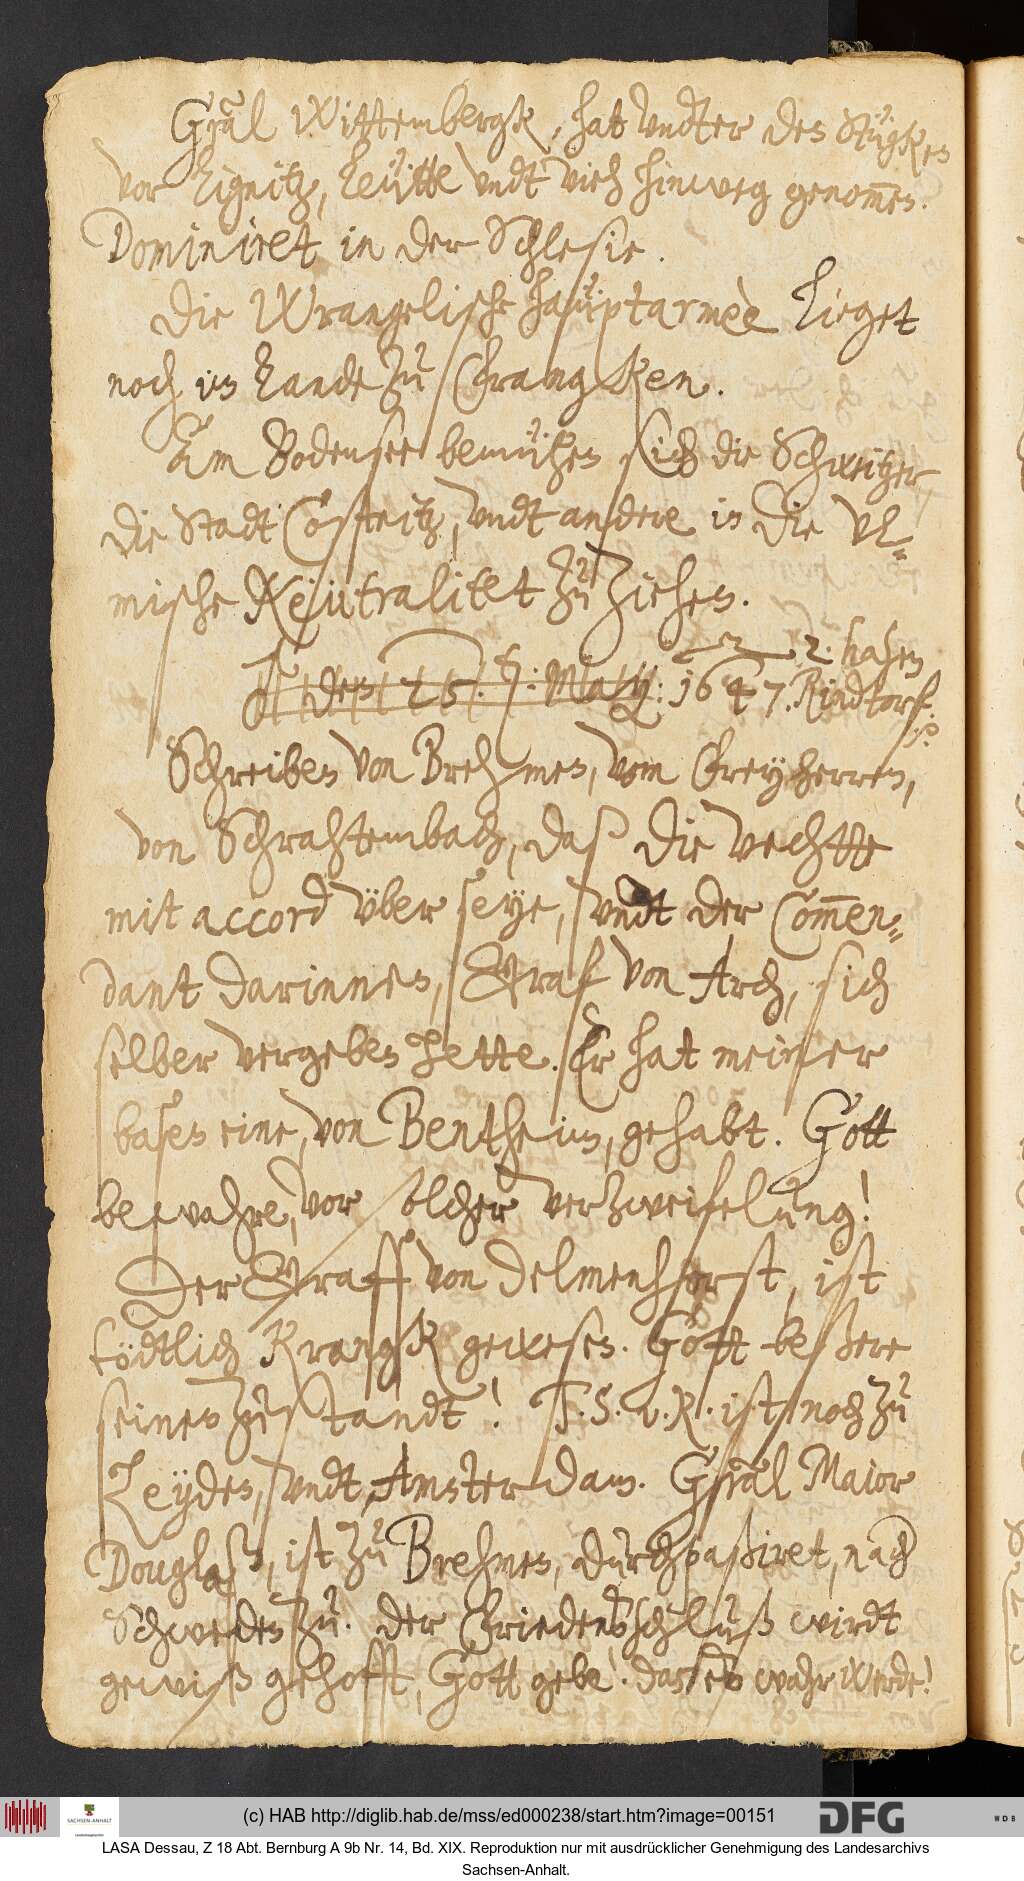 Gräl Wittembergk, hat undter des Stügkes
vor Lignitz, Leütte undt vieh hinweg genom̄en.
Dominiret in der Schlesie.
Die Wrangelische haüptarmèe Lieget
noch im Lande zu Frangken.
Am Bodensee bemühen sich die Schweitzer,
die Stadt Costnitz, undt andere in die Vl-
mische Neütralitet zu ziehen.
den 25. May: 1647.
2. hasen
Rindtorf.
Schreiben von Brehmen, vom Freyherren,
von Schrahtembach, daß die Vechtte
mit accord über seye, undt der Com̄en-
dant darinnen, Graf von Arch, sich
selber vergeben hette. Er hat meiner
basen eine, von Bentheim, gehabt. Gott
bewahre, vor solcher verzweifelung!
Der Graff von Delmenhorst, ist
tödtlich Krangk gewesen. Gott beßere
seinen zustandt! F. S. v. R. ist noch zu
Leyden, undt Amsterdam. Gräl Maior
Douglaß, ist zu Brehmen, durchpaßiret, nach
Schweden zu. Der Friedensschluß wirdt
gewiß gehofft, Gott gebe! das es wahr werde!
(c) HAB http://diglib.hab.de/mss/ed000238/start.htm?image=00151
SACHSEN-ANHALT
DFG
WDB
LASA Dessau, Z 18 Abt. Bernburg A 9b Nr. 14, Bd. XIX. Reproduktion nur mit ausdrücklicher Genehmigung des Landesarchivs
Sachsen-Anhalt.